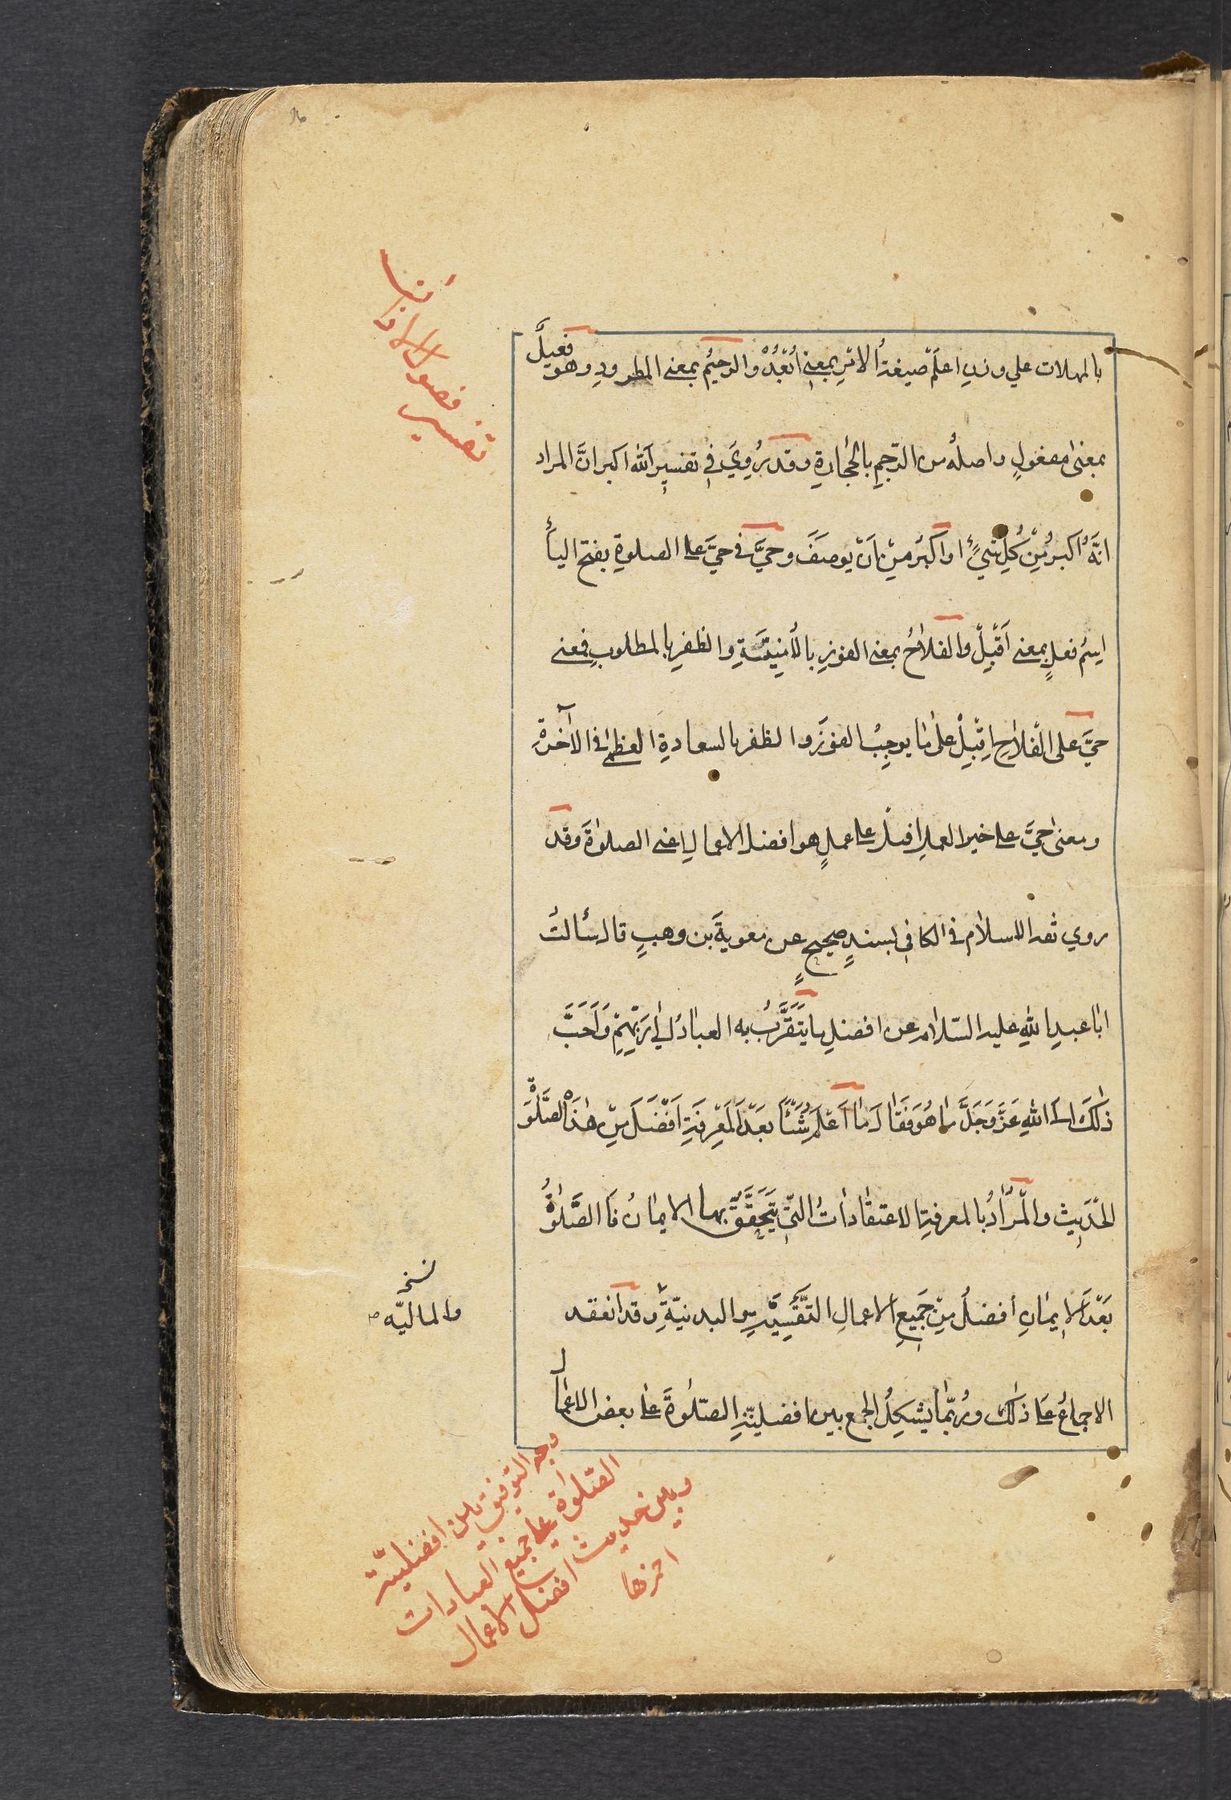 تفسير فصول الاذان
بالمهملات علي وزنِ اعلَمْ صيغةُ الامْرِ بمعنى اُبْعُدْ والرجيُم بمعنى المطرودِ وهو فعيلٌ
بمعنى مفعولٍ واصلُه من الرّجمِ بالحجارةِ وقد رُوِيَ في تفسيرِ الله اكبر انَّ المراد
انّهُ اكبرُ مِنْ كُلِ شيْءٍ او اكبَرُ مِنْ اَنْ يوصَفَ وحيَّ في حيَّ على الصلوةِ بفتح الياءِ
اِسمُ فعلٍ بمعنى اَقْبِلْ والفلاحُ بمعنى الفوزِ بالاُمنيّةِ والظفرِ بالمطلوبِ فمعنى
حيَّ على الفَلاحِ اقْبِلْ على ما يوجِبُ الفوزَ والظفر بالسعادةِ العظمى في الآخرةِ
ومعنى حيَّ على خير العملِ اقبل على عملٍ هو افضل الاعمالِ اعنى الصلوةَ وقد
روي ثقه الاسلام في الكافى بسندٍ صحيحٍ عن معوية بن وهبٍ قال سألتُ
ابا عبدِ اللهِ عليه السّلام عن افضلِ ما يَتَقَرَّبُ به العبادُ اِلى رَبِّهِمْ وَاَحَبَّ
ذلكَ الى اللهِ عَزَّ وَجَلَّ ما هُوَ فَقالَ ما اَعْلَمُ شَيْئًا بَعْدَ المَعْرِفَةِ اَفْضَلَ مِنْ هذِهِ الصَّلوةِ
الحَديثَ والمُرادُ بالمعرفةِ الاعتقاداتُ التي يَتَحَقَّقُ بها الايمانُ فالصَّلوةُ
بَعْدَ الايمانِ افضلُ مِنْ جَميعِ الاعمالِ النَّفْسِيَّةِ والبدنيّةِ وقد انعقد
نسخه
والماليّه
الاجماعُ على ذلك ورُبَّما يشكِلُ الجمع بين افضليّةِ الصّلوةَ على بعض الاعمال
وجه التوفيق بين افضليّة
الصّلوة على جميع العبادات
وبين حديث افضل الاعمال
احمزها